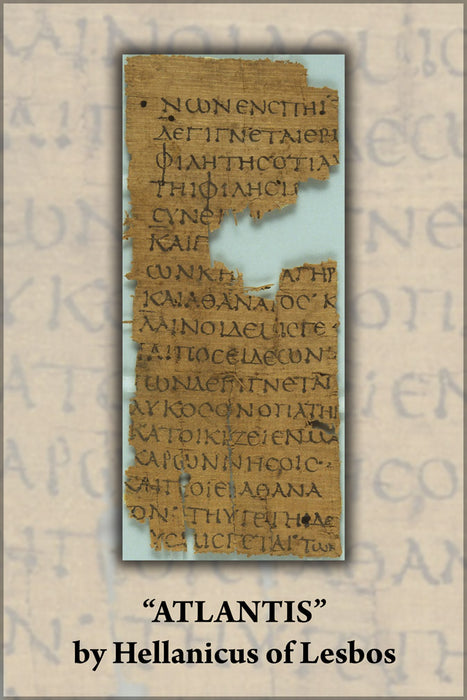 ΝΩΝ ΕΝ CΠΗΙ
ΔΕ ΓΙΓΝΕΤΑΙ ΕΡΜ
ΦΙΛΗΤΗC ΟΤΙ Α
ΤΗΙ ΦΙΛΗCΙ
CΥΝΕ
ΚΑΙ Γ
ΩΝ ΚΗ ΑΓΗΡ
ΚΑΙ ΑΘΑΝΑΤΟC Κ
ΛΑΙΝΟΙ ΔΕ ΜΙCΓΕ
ΤΑΙ ΠΟCΕΙΔΕΩΝ
ΤΩΝ ΔΕ ΓΙΓΝΕΤΑΙ
ΛΥΚΟC ΟΝ Ο ΠΑΤΗ
ΚΑΤΟΙΚΙΖΕΙ ΕΝ ΜΑ
ΚΑΡΩΝ ΝΗCΟΙC
ΚΑΙ ΠΟΙΕΙ ΑΘΑΝΑ
ΤΟΝ· ΤΗΥΓΕΤΗΙ ΔΕ
ΥC ΜΙCΓΕΤΑΙ ΤΩΝ
“ATLANTIS”
by Hellanicus of Lesbos